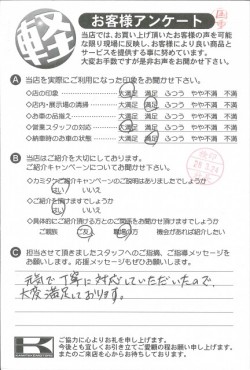 軽
お客様アンケート
当店では、お買い上げ頂いたお客様の声を可能
な限り現場に反映し、お客様により良い商品と
サービスを提供する事に努めています。
大変お手数ですが是非お声をお聞かせ下さい。
A 当店を実際にご利用になった印象をお聞かせ下さい。
◇店の印象 大満足 満足 ふつう やや不満 不満
◇店内・展示場の清掃 大満足 満足 ふつう やや不満 不満
◇お車の品揃え 大満足 満足 ふつう やや不満 不満
◇営業スタッフの対応 大満足 満足 ふつう やや不満 不満
◇納車時のお車の状態 大満足 満足 ふつう やや不満 不満
B 当店はご紹介を大切にしております。
ご紹介キャンペーンについてお聞かせ下さい。
◇カミタケご紹介キャンペーンの説明はありましたでしょうか
はい いいえ
◇ご紹介を頂けますでしょうか
はい いいえ
◇具体的にご紹介頂ける方とのご関係をお聞かせ頂けますでしょうか
ご親族 ご友人 職場の方 機会があれば紹介したい
C 担当させて頂きましたスタッフへのご指摘、ご指導メッセージを
お願いします。応援メッセージもぜひお願いします。
元気で丁寧に対応していただいたので、
大変満足しております。
K
ご協力に心よりお礼を申し上げます。
今後とも宜しくお引き立てご愛顧の程お願い申し上げます。
またのご来店を心からお待ちしております。